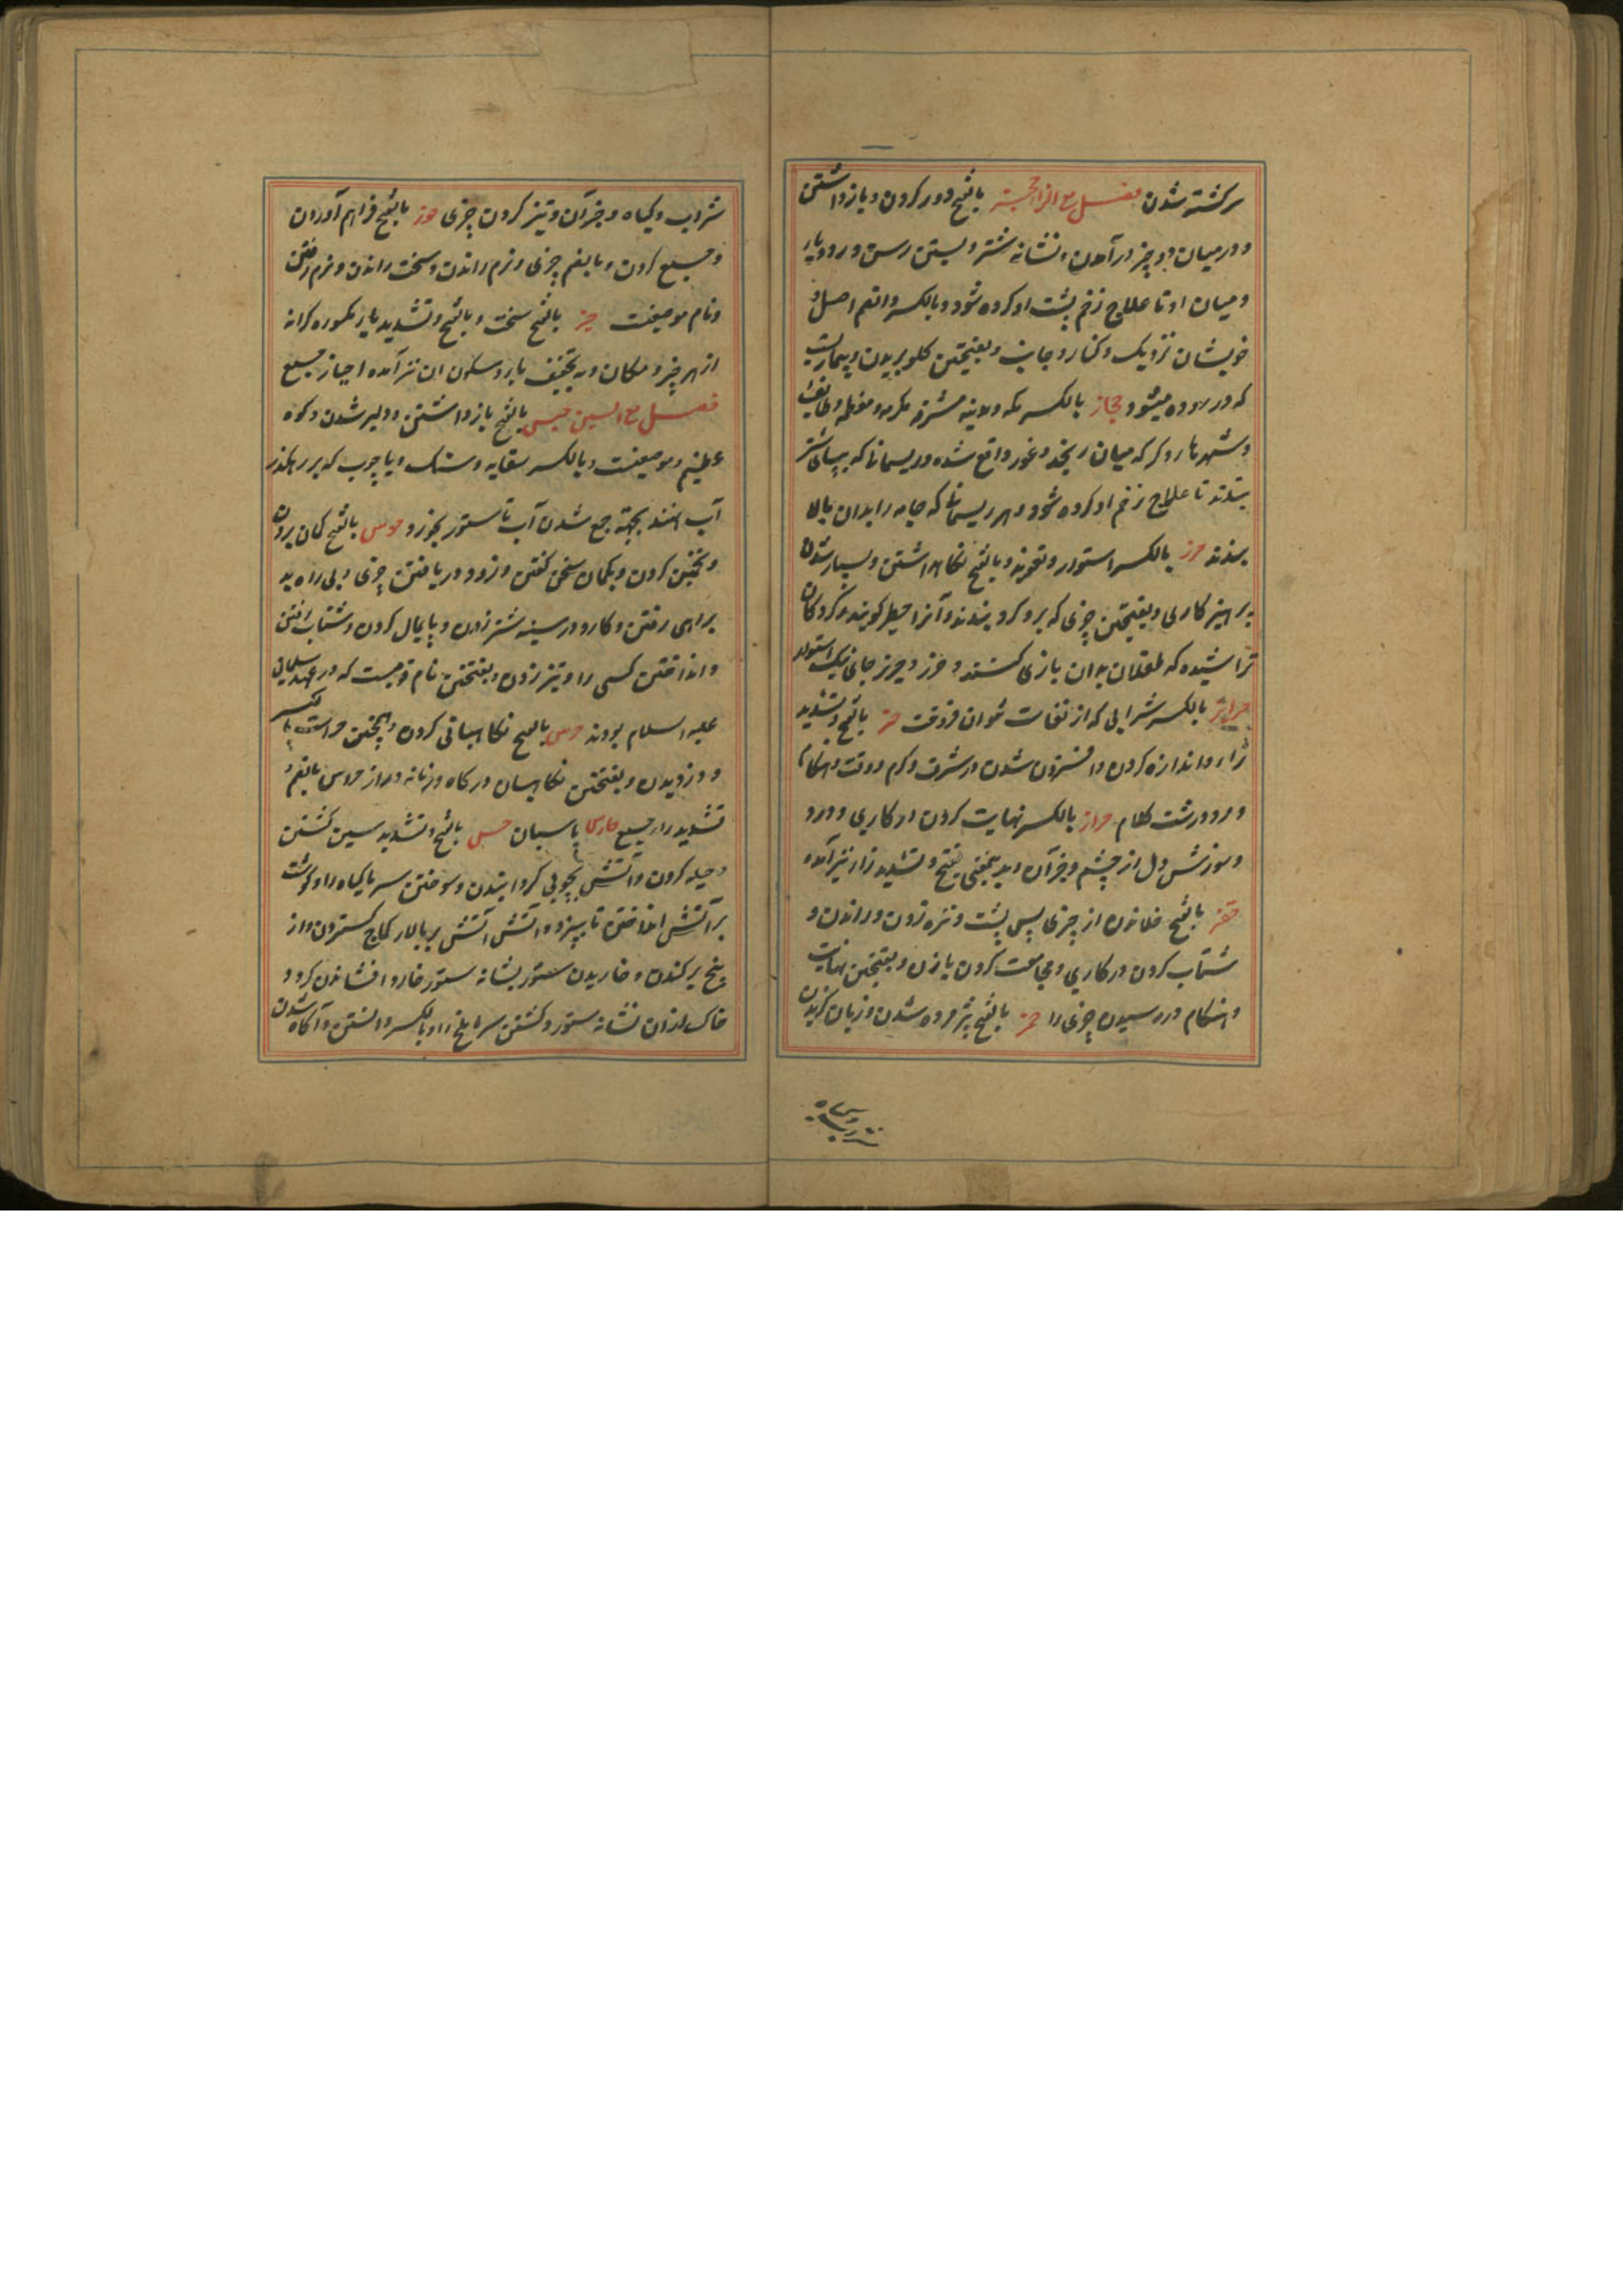 سرکشته شدن فصل مع الزاء المعجمة بالفتح دور کردن و باز داشتن
و در میان دو چیز در آمدن و نشانه شتر و بستن رسن در دو پای
و میان او تا علاج زخم پشت او کرده شود و بالکسر والضم اصل و
خویشان نزدیک و کنار و جانب و بفتحتین کلو بریدن و بیماریست
که در روده میشود حجاز بالکسر مکه و مدینه مشرفه مکرمه و معظمه و طایف
و شهرها دیکر که میان نجد و غور واقع شده و ریسمانی که بپای شتر
بندند تا علاج زخم او کرده شود و هر ریسمانی که جامه را بدان بالا
بندند حرز بالکسر استوار و تعویذ و بالفتح نکاهداشتن و بسیار شدن
پرهیزکاری و بفتحتین چیزی که برو کرو بندند و آنرا خطر کویند و کردکان
تراشیده که طفلان بدان بازی کنند و حرز و حریز جای نیک استوار
بالکسر شرابی که از فوقت حز بالفتح و تشدید
زاء و اندازه کردن و افزون شدن در شرف و کرم و وقت و هنکام
و مرد درشت کلام حزاز بالکسر نهایت کردن در کاری و درد
و سوزش دل از خشم و جز آن و بدینمعنی بفتح و تشدید زا نیز آمده
حفز بالفتح خلانیدن از چیزی پس پشت و نیزه زدن و راندن و
شتاب کردن در کاری و مجامعت کردن با زن و بفتحتین نهایت
و هنکام در رسیدن چیزی را حمز بالفتح پژمرده شدن و زبان کزیدن
شراب و کیاه و جز آن و تیز کردن چیزی حوز بالفتح فراهم آوردن
و جمع کردن و بالضم چیزی و نرم راندن و سخت راندن و نرم رفتن
و نام موضعیست حیز بالفتح سخت و بالفتح و تشدید یاء مکسوره کرانه
از هر چیز و مکان و به تخفیف یا و سکون آن نیز آمده احیاز جمع
فصل مع السین حبس بالفتح باز داشتن و دلیر شدن و کوه
عظیم و موضعیست و بالکسر سقایه و سنک و یا چوب که بر رهکذر
آب نهند بجهة جمع شدن آب تا ستور بخورد حدس بالفتح کمان بردن
و تخمین کردن و بکمان سخن کفتن و زود دریافتن چیزی و بی راه به
براهی رفتن و کارد در سینه شتر زدن و پایمال کردن و شتاب رفتن
و انداختن کسی را و تیر زدن و بفتحتین نام قومیست که در عهد سلیمان
علیه السلام بودند حرس بالفتح نکاهبانی کردن و بالکسر
و دزدیدن و بفتحتین نکاهبان درکاه و زمانه دراز حراس بالضم و
تشدید راء جمع حارس پاسبان حس بالفتح و تشدید سین کشتن
و حیله کردن و آتش بچوبی کردانیدن و سوختن سرما کیاه را و کوشت
بر آتش انداختن تا بپزد و آتش بر بالای کماج کستردن و از
بیخ برکندن و خاریدن ستور بشانه ستور خار و افشاندن کرد و
خاک از آن شانه ستور و کشتن سرما ملخ را و بالکسر دانستن و آکاه شدن